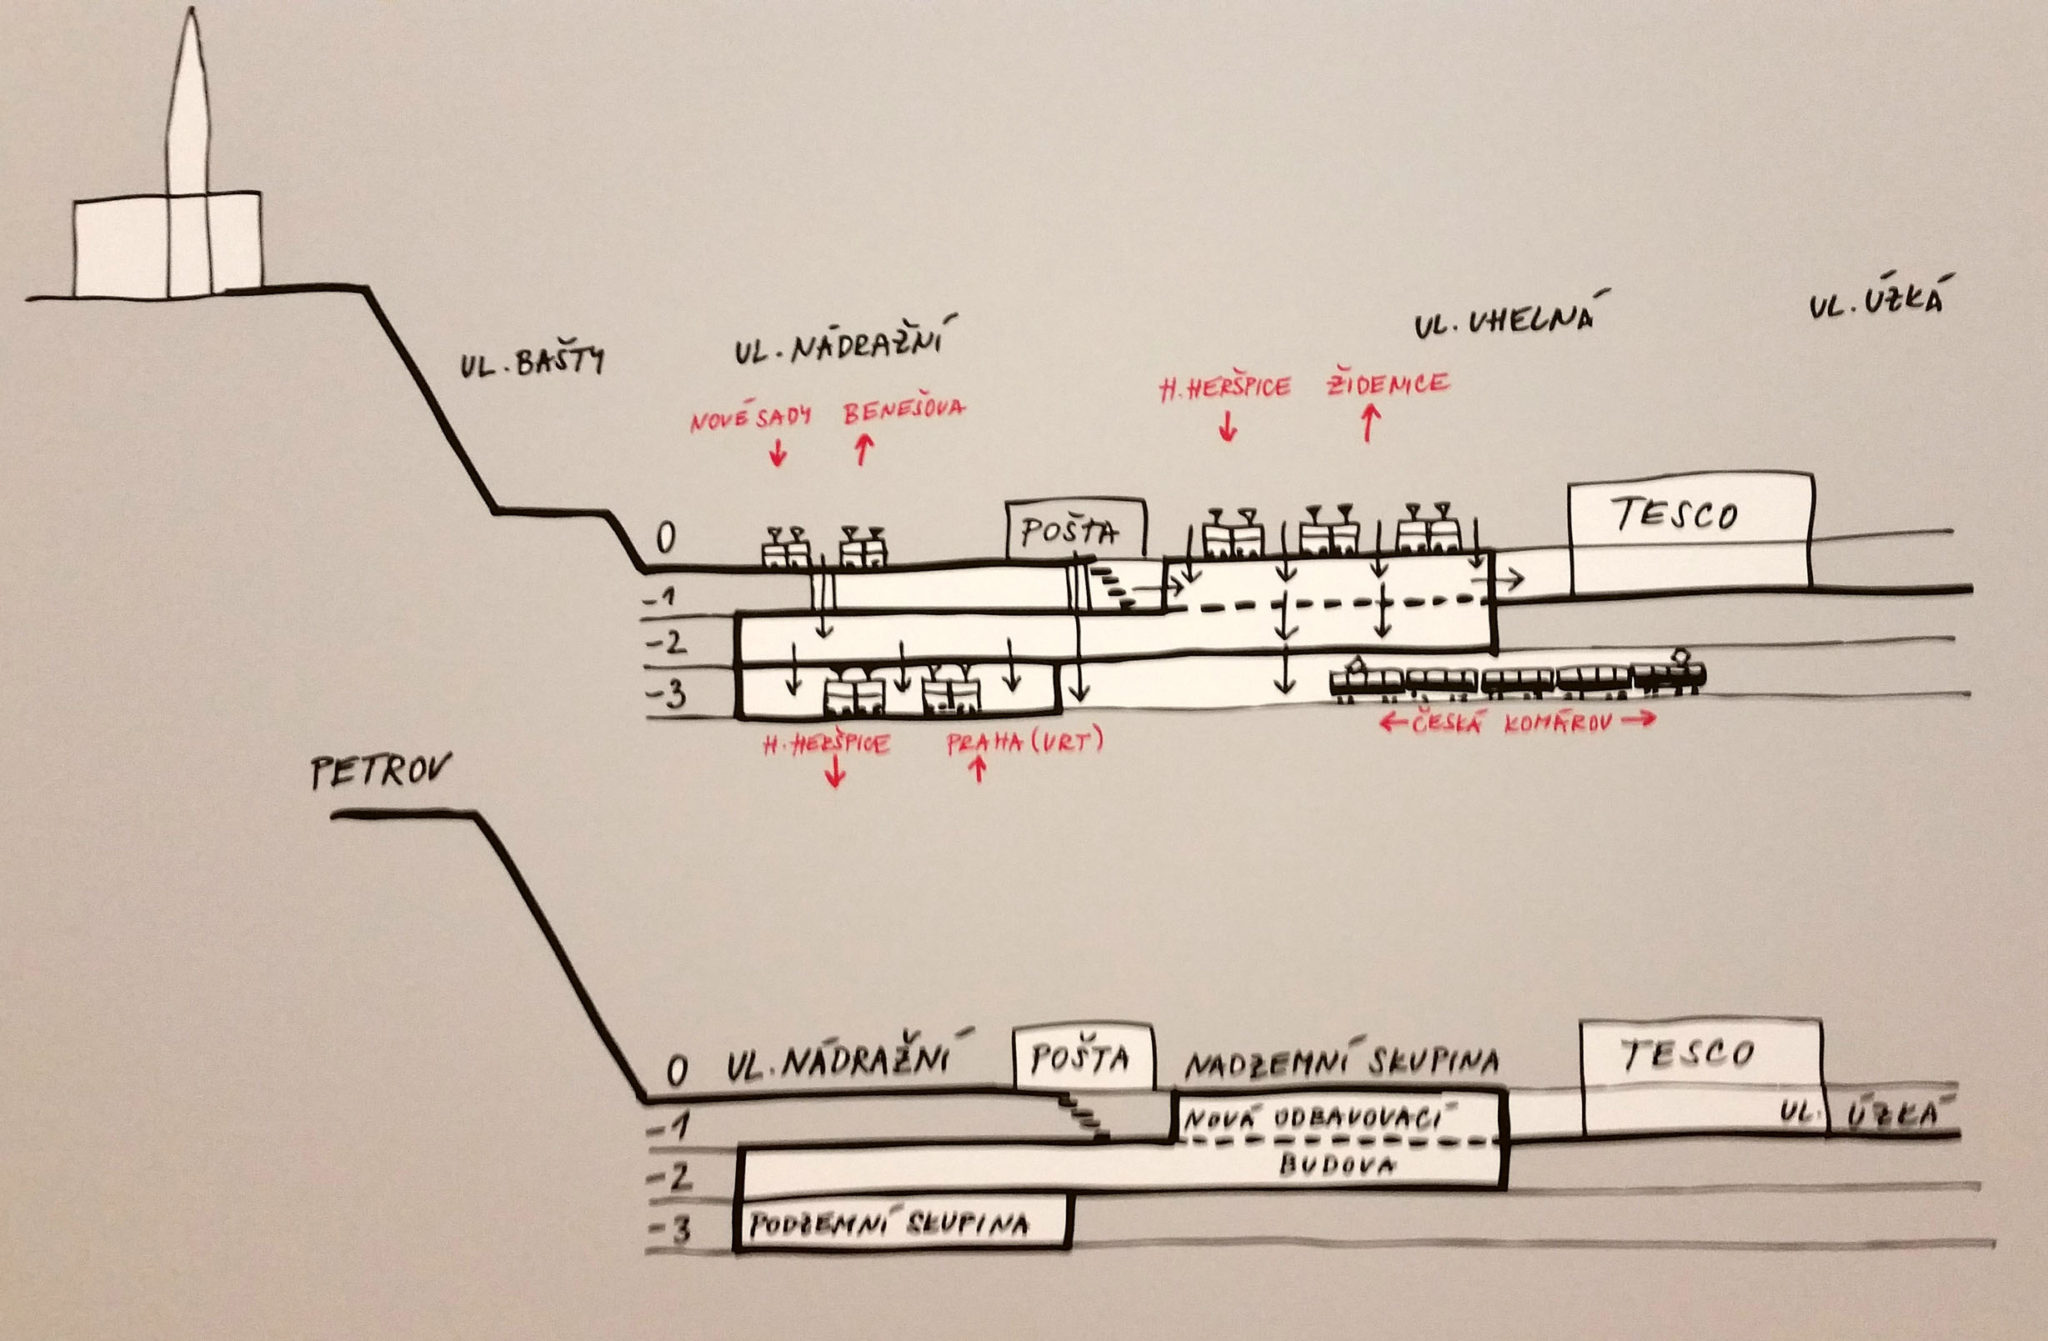 UL. BAŠTY
UL. NÁDRAŽNÍ
UL. UHELNÁ
UL. ÚZKÁ
NOVÉ SADY BENEŠOVA
H. HERŠPICE ŽIDENICE
0
-1
-2
-3
POŠTA
TESCO
H. HERŠPICE PRAHA (VRT)
ČESKÁ KOMÁROV
PETROV
0 UL. NÁDRAŽNÍ POŠTA NADZEMNÍ SKUPINA TESCO
-1 NOVÁ ODBAVOVACÍ UL. ÚZKÁ
-2 BUDOVA
-3 PODZEMNÍ SKUPINA